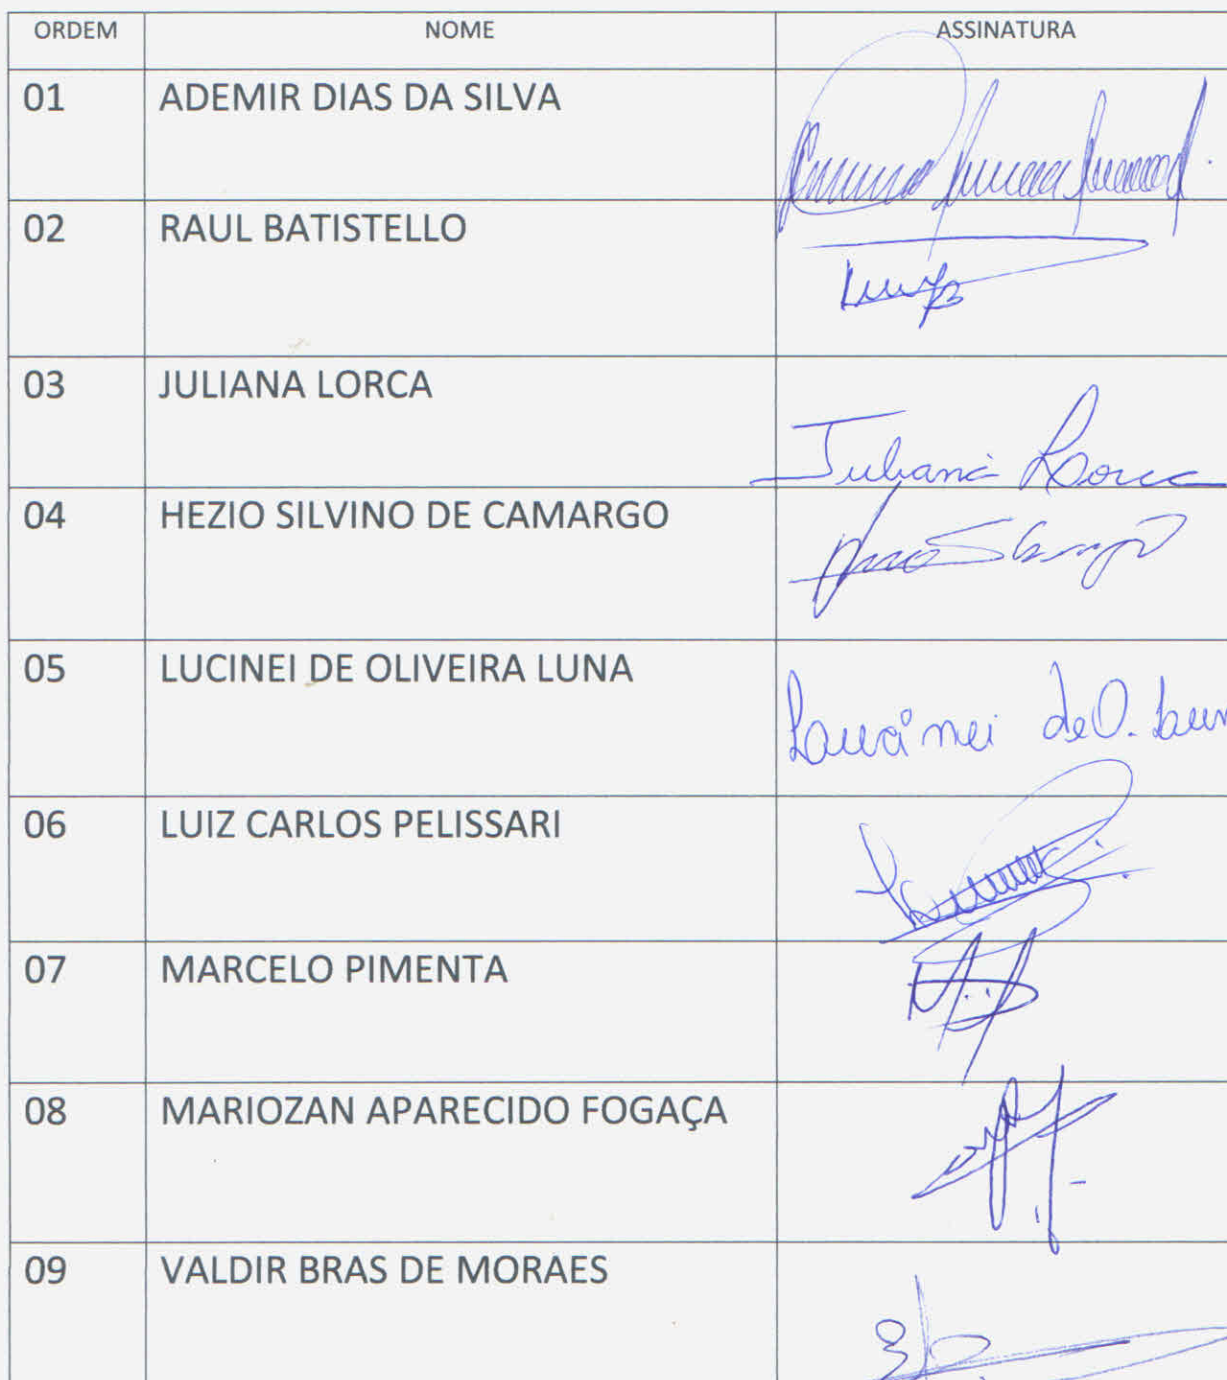 ORDEM NOME ASSINATURA
01 ADEMIR DIAS DA SILVA
02 RAUL BATISTELLO
03 JULIANA LORCA
Juliana Lorca
04 HEZIO SILVINO DE CAMARGO
05 LUCINEI DE OLIVEIRA LUNA
Lucinei de O. Lun
06 LUIZ CARLOS PELISSARI
07 MARCELO PIMENTA
08 MARIOZAN APARECIDO FOGAÇA
09 VALDIR BRAS DE MORAES